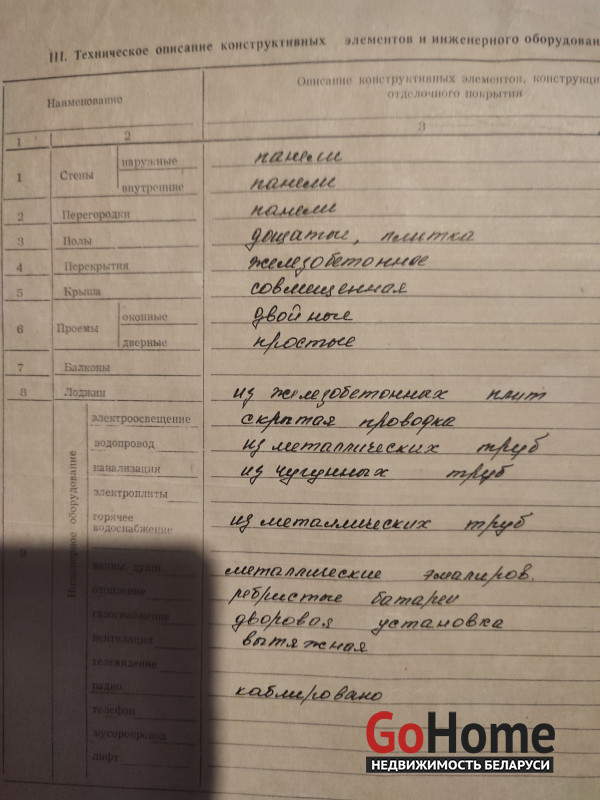 III. Техническое описание конструктивных элементов и инженерного оборудован
Наименование
Описание конструктивных элементов, конструкци
отделочного покрытия
1 2 3
1 Стены наружные панели
внутренние панели
2 Перегородки панели
3 Полы дощатые, плитка
4 Перекрытия железобетонное
5 Крыша совмещенная
6 Проемы оконные двойные
дверные простые
7 Балконы
8 Лоджии из железобетонных плит
9 Инженерное оборудование
электроосвещение скрытая проводка
водопровод из металлических труб
канализация из чугунных труб
электроплиты
горячее
водоснабжение из металлических труб
ванны, души металлические эмалиров.
отопление ребристые батареи
газоснабжение дворовая установка
вентиляция вытяжная
телевидение
радио каблировано
телефон
мусоропровод
лифт
GoHome
НЕДВИЖИМОСТЬ БЕЛАРУСИ